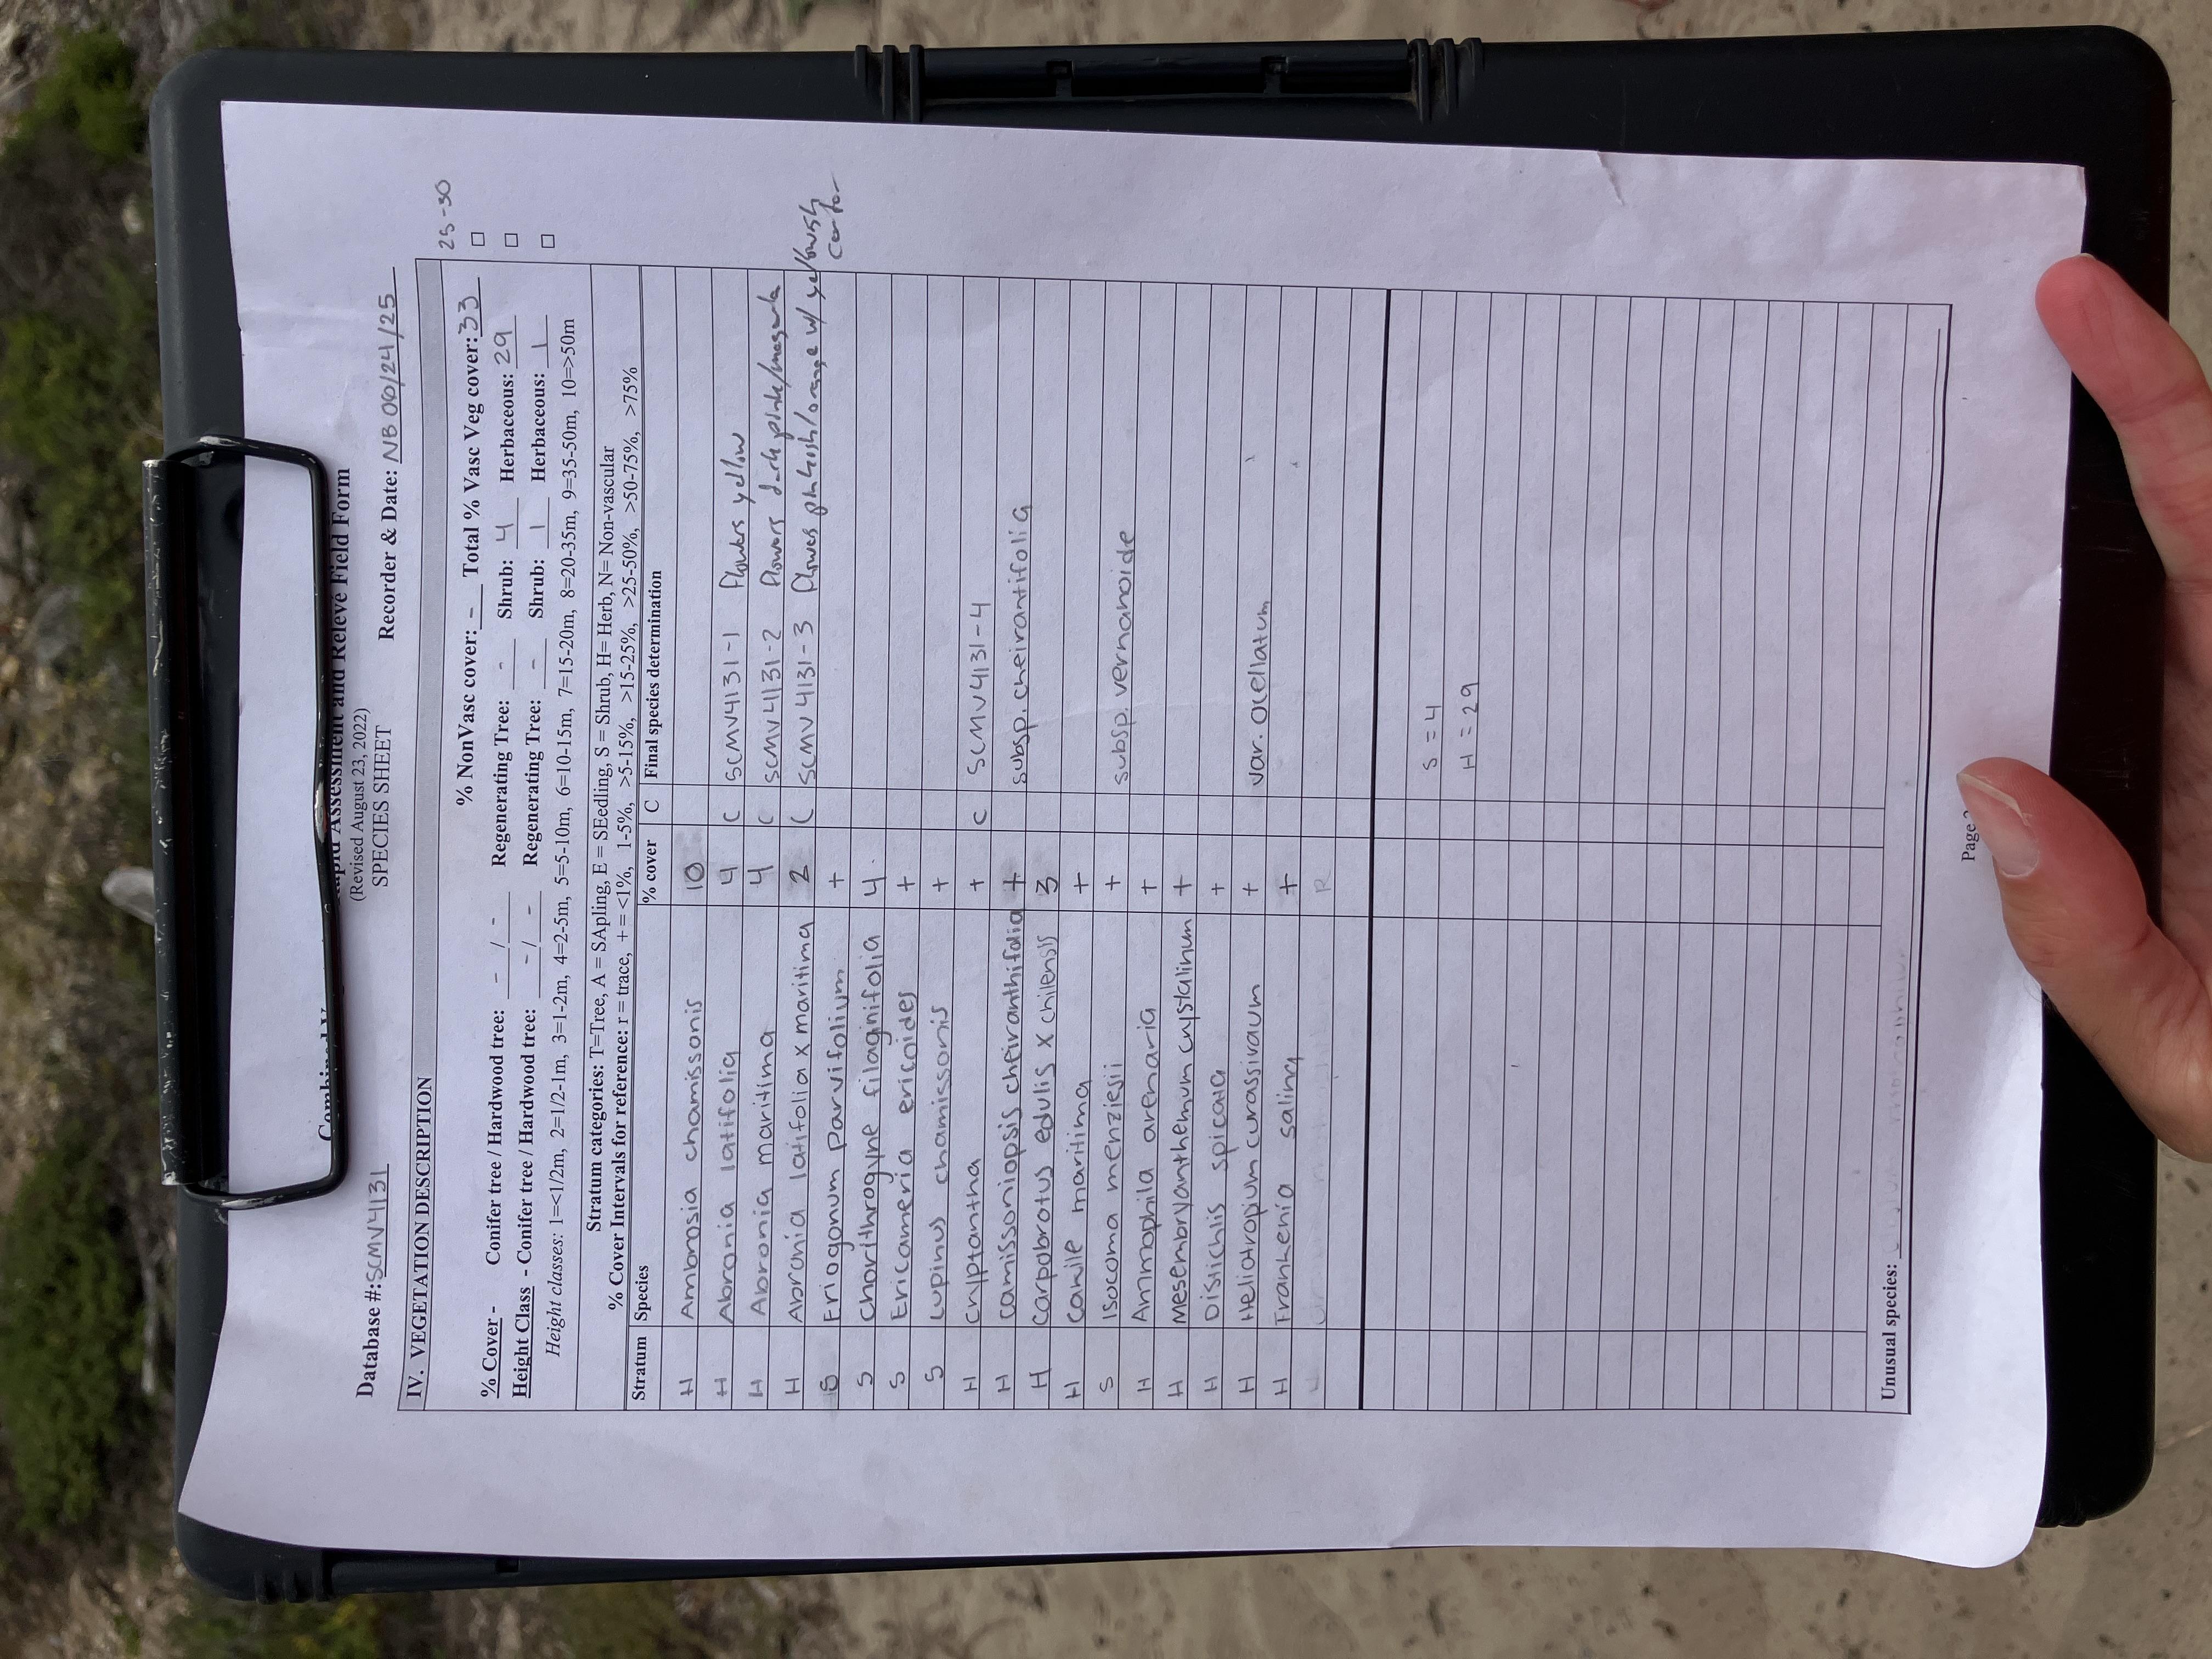 Assessment and Relevé Field Form
(Revised August 23, 2022)
SPECIES SHEET
Database #: SCMV4131 Recorder & Date: NB 06/24/25
IV. VEGETATION DESCRIPTION
25-30
% NonVasc cover: - Total % Vasc Veg cover: 33 □
% Cover - Conifer tree / Hardwood tree: - / - Regenerating Tree: - Shrub: 4 Herbaceous: 29 □
Height Class - Conifer tree / Hardwood tree: - / - Regenerating Tree: - Shrub: 1 Herbaceous: 1 □
Height classes: 1=<1/2m, 2=1/2-1m, 3=1-2m, 4=2-5m, 5=5-10m, 6=10-15m, 7=15-20m, 8=20-35m, 9=35-50m, 10=>50m
Stratum categories: T=Tree, A = SApling, E = SEedling, S = Shrub, H= Herb, N= Non-vascular
% Cover Intervals for reference: r = trace, + = <1%, 1-5%, >5-15%, >15-25%, >25-50%, >50-75%, >75%
Stratum Species % cover C Final species determination
H Ambrosia chamissonis 10
H Abronia latifolia 4 C SCMV4131-1 flowers yellow
H Abronia maritima 4 C SCMV4131-2 flowers dark pink/magenta
H Abronia latifolia x maritima 2 C SCMV4131-3 flowers pinkish/orange w/ yellowish center
S Eriogonum parvifolium +
S Chorithrogyne filaginifolia 4
S Ericameria ericoides +
S Lupinus chamissonis +
H Cryptantha + C SCMV4131-4
H Camissoniopsis cheiranthifolia + subsp. cheirantifolia
H Carpobrotus edulis x chilensis 3
H Cakile maritima +
S Isocoma menziesii + subsp. vernanoide
H Ammophila arenaria +
H Mesembryanthemum crystalinum +
H Distichlis spicata +
H Heliotropium curassivaum + var. ocellatum
H Frankenia salina +
R
S = 4
H = 29
Unusual species:
Page